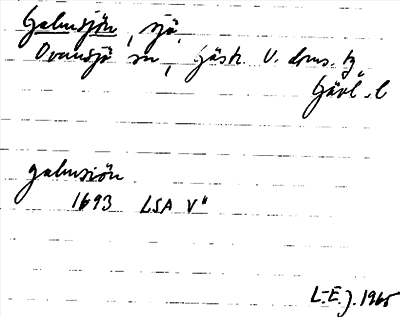 Galmsjön, sjö,
Ovansjö sn, Gästr. V. doms. tg
Gävl. l
galmsiön
1693 LSA V"
L-E. J. 1965